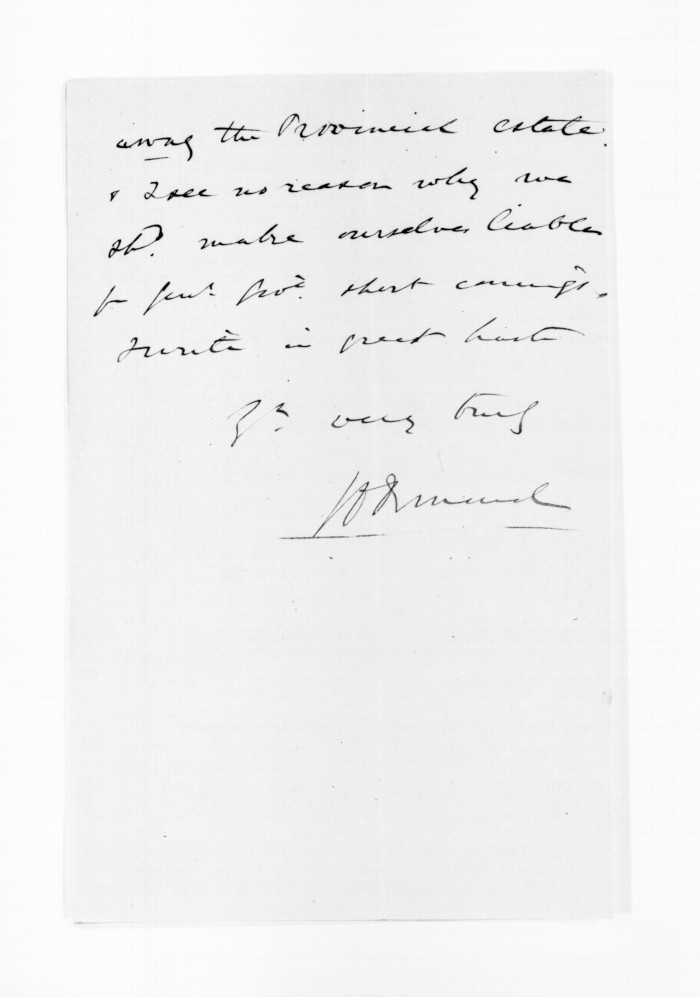 away the Provincial estate.
& I see no reason why we
shd. make ourselves liable
for Genl. Govt. short comings.
I write in great haste
Yrs very truly
J D Ormond